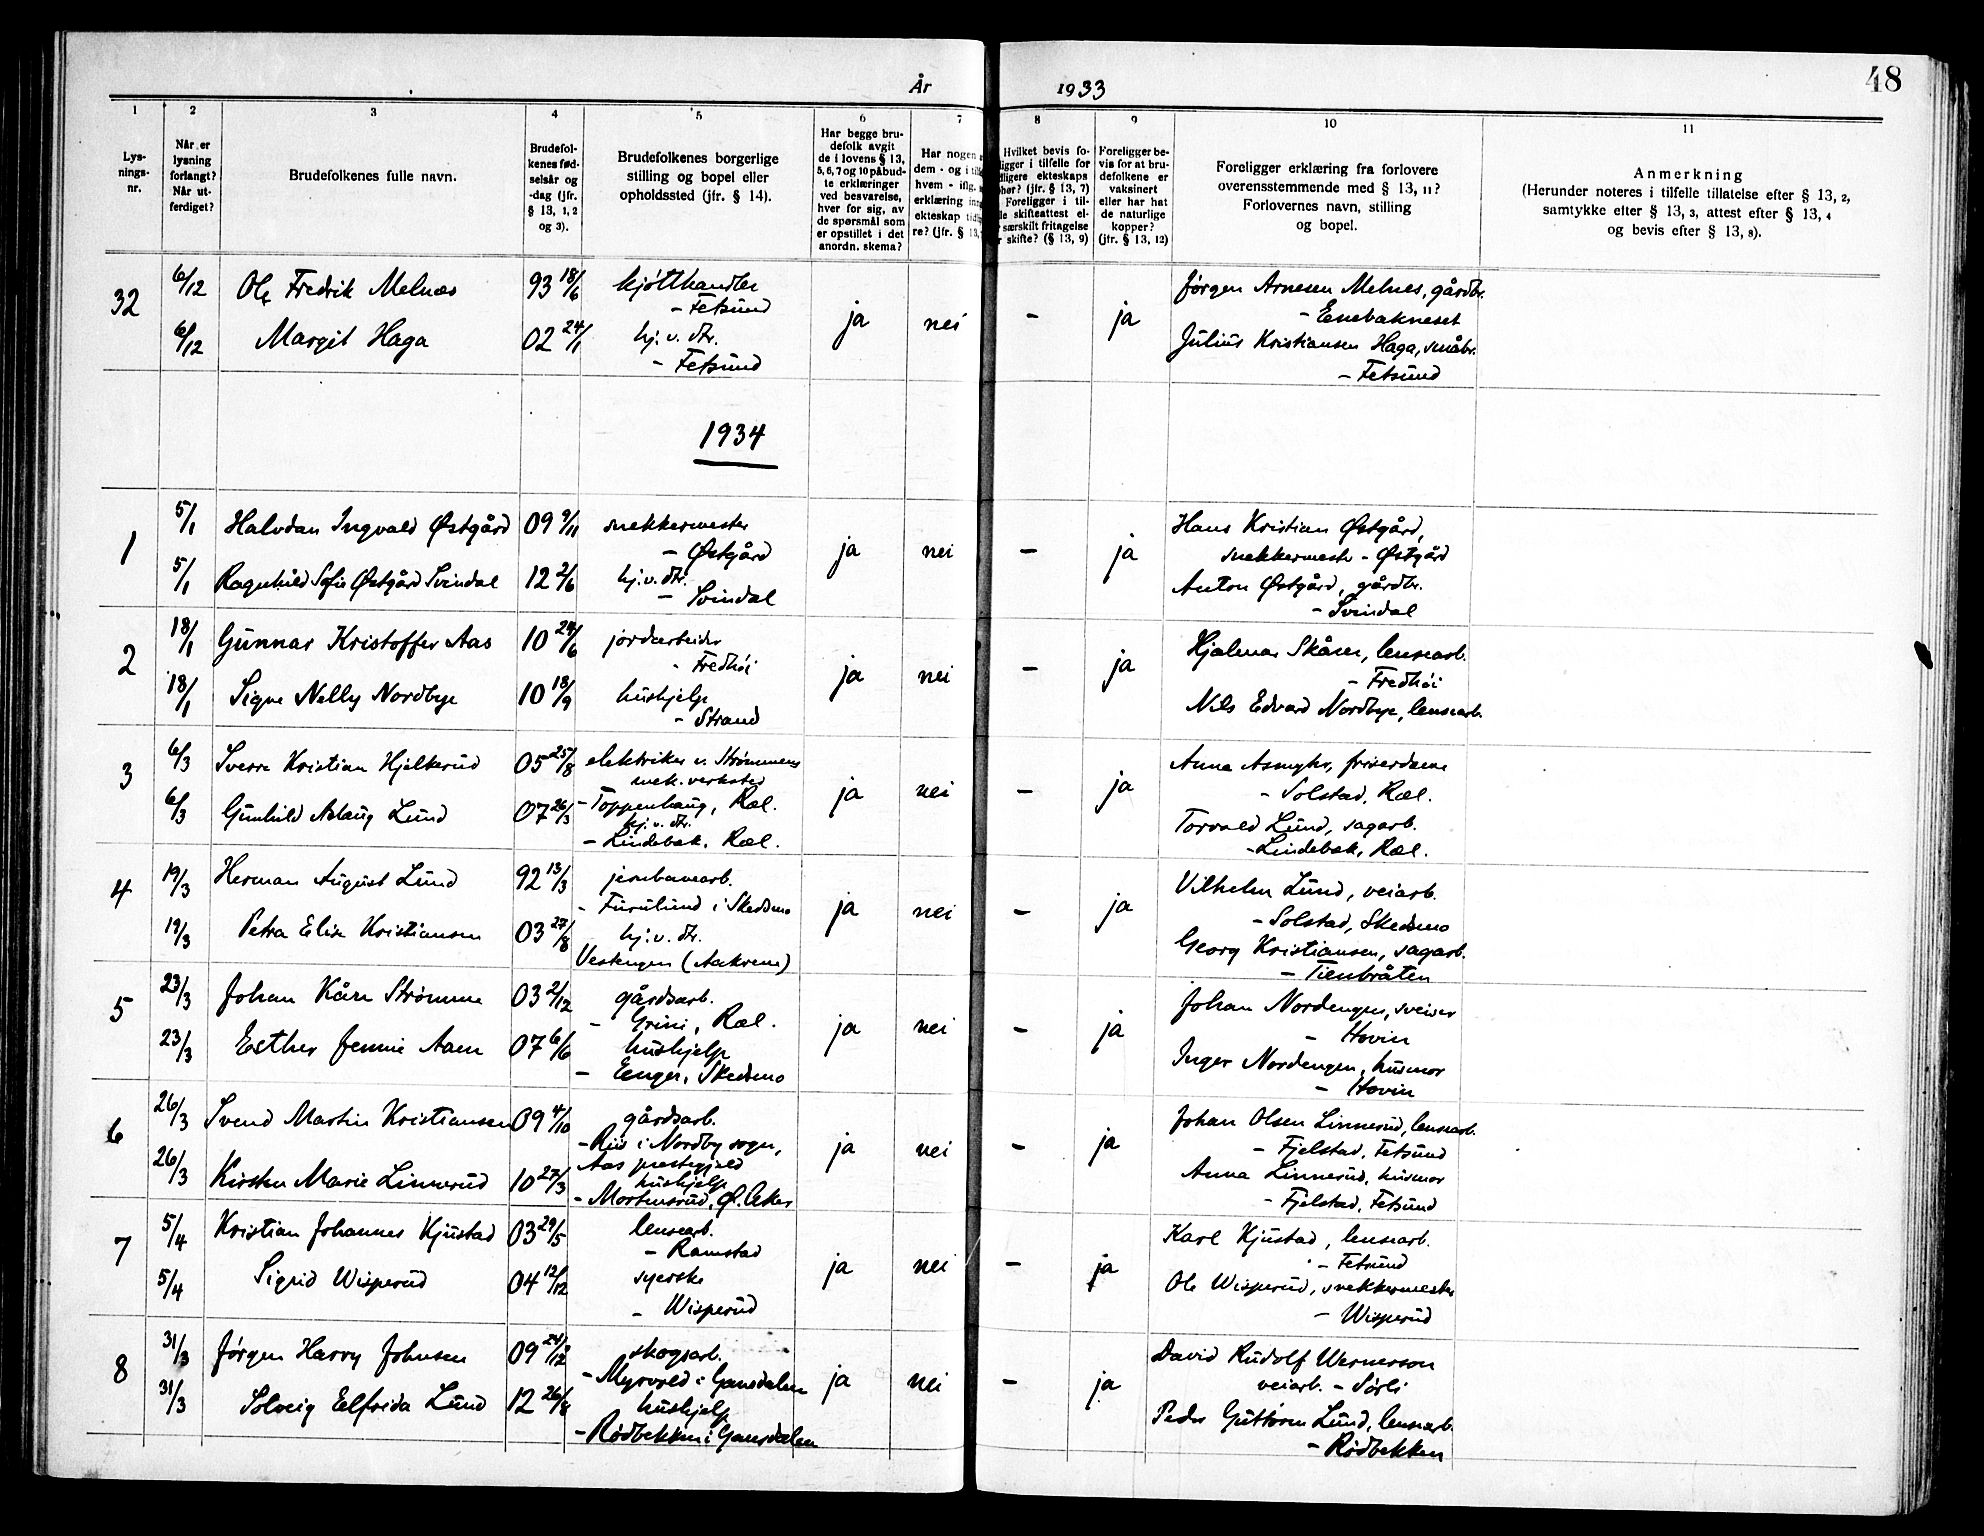 År 1933
48
1 2 3 4 5 6 7 8 9 10 11
Lys-
nings-
nr.
Når er
lysning
forlangt?
Når ut-
ferdiget?
Brudefolkenes fulle navn.
Brudefol-
kenes fød-
selsår og
-dag (jfr.
§ 13, 1, 2
og 3).
Brudefolkenes borgerlige
stilling og bopel eller
opholdssted (jfr. § 14).
Har begge bru-
defolk avgit
de i lovens § 13,
5, 6, 7 og 10 påbud-
te erklæringer
ved besvarelse,
hver for sig, av
de spørsmål som
er opstillet i det
anordn. skema?
Har nogen
dem - og i
hvem - iflg.
erklæring
ekteskap
re? (jfr. § 13,
Hvilket bevis fo-
ligger i tilfelle for
ligere ekteskaps
hør? (jfr. § 13, 7)
Foreligger i til-
le skifteattest el-
særskilt fritagelse
skifte? (§ 13, 9)
Foreligger be-
vis for at bru-
defolkene er
vaksinert
eller har hat
de naturlige
kopper?
(jfr. § 13, 12)
Foreligger erklæring fra forlovere
overensstemmende med § 13, 11?
Forlovernes navn, stilling
og bopel.
Anmerkning
(Herunder noteres i tilfelle tillatelse efter § 13, 2,
samtykke efter § 13, 3, attest efter § 13, 4
og bevis efter § 13, 8).
32 6/12 Ole Fredrik Melnæs 93 18/6 kjøtthandler
- Fetsund
ja nei - ja
Jørgen Arnesen Melnes, gårdbr.
- Enebakneset
6/12 Margit Haga 02 24/1 hj. v. dtr.
- Fetsund
Julius Kristiansen Haga, småbr.
- Fetsund
1934
1 5/1 Halvdan Ingvald Østgård 09 9/11 snekkermester
- Østgård
ja nei - ja
Hans Kristian Østgård,
snekkermest - Østgård
5/1 Ragnhild Sofie Østgård Svindal 12 2/6 hj. v. dtr.
- Svindal
Anton Østgård, gårdbr.
- Svindal
2 18/1 Gunnar Kristoffer Aas 10 24/6 jordarbeider
- Fredhöi
ja nei - ja
Hjalmar Skåren, lensearb.
- Fredhöi
18/1 Signe Nelly Nordbye 10 18/9 hushjelp
- Strand
Nils Edvard Nordbye, lensearb.
3 6/3 Sverre Kristian Hjelkerud 05 25/8 elektriker v. Strømmens
mek. verksted
- Toppenhaug, Ræl.
ja nei - ja
Anna Asmyhr, friserdame
- Solstad, Ræl.
6/3 Gunhild Aslaug Lund 07 26/3 hj. v. dtr.
- Lindebak, Ræl.
Torvald Lund, sagarb.
- Lindebæk, Ræl.
4 19/3 Herman August Lund 92 13/3 jernbanearb.
- Furulund i Skedsmo
ja nei - ja
Vilhelm Lund, veiarb.
- Solstad, Skedsmo
19/3 Petra Elise Kristiansen 03 27/8 hj. v. dtr.
Vestengen (Aakrene)
Georg Kristiansen, sagarb.
- Tienbråten
5 23/3 Johan Kåre Strømme 03 2/12 gårdsarb.
- Grini, Ræl.
ja nei - ja
Johan Nordengen, sveiser
- Hovin
23/3 Esther Jennie Aaen 07 6/6 hushjelp
- Enger, Skedsmo
Inger Nordengen, husmor
- Hovin
6 26/3 Svend Martin Kristiansen 09 4/10 gårdsarb.
- Riis i Nordby sogn,
Aas prestegjeld
ja nei - ja
Johan Olsen Linnerud, lensearb.
- Fjelstad, Fetsund
26/3 Kirsten Marie Linnerud 10 27/3 hushjelp
- Mortensrud, Ø. Aker
Anna Linnerud, husmor
- Fjelstad, Fetsund
7 5/4 Kristian Johannes Kjustad 03 29/5 lensearb.
- Ramstad
ja nei - ja
Karl Kjustad, lensearb.
- Fetsund
5/4 Sigrid Wisperud 04 12/12 syerske
- Wisperud
Ole Wisperud, snekkermester
- Wisperud
8 31/3 Jørgen Harry Johnsen 09 24/12 skogsarb.
- Myrvold i Gansdalen
ja nei - ja
David Rudolf Wernersson
veiarb. - Sørli
31/3 Solveig Elfrida Lund 12 26/8 hushjelp
- Rödbekken i Gansdalen
Peder Guttorm Lund, lensearb.
- Rödbekken